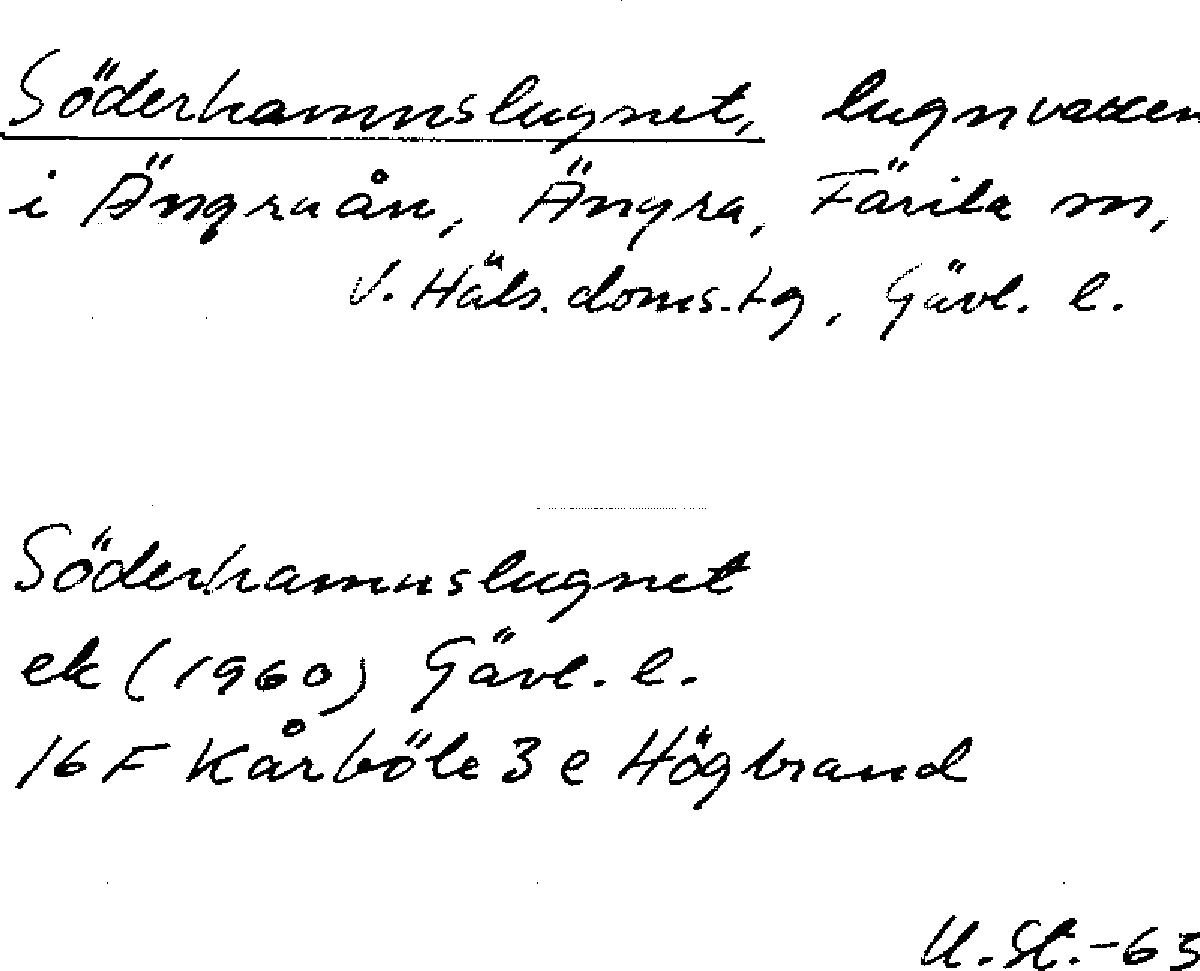 Söderhamnslugnet, lugnvatten
i Ängraån, Ängra, Färila sn,
V. Häls. doms.tg, Gävl. l.
Söderhamnslugnet
ek (1960) Gävl. l.
16 F Kårböle 3 e Högbrand
U. St. -63